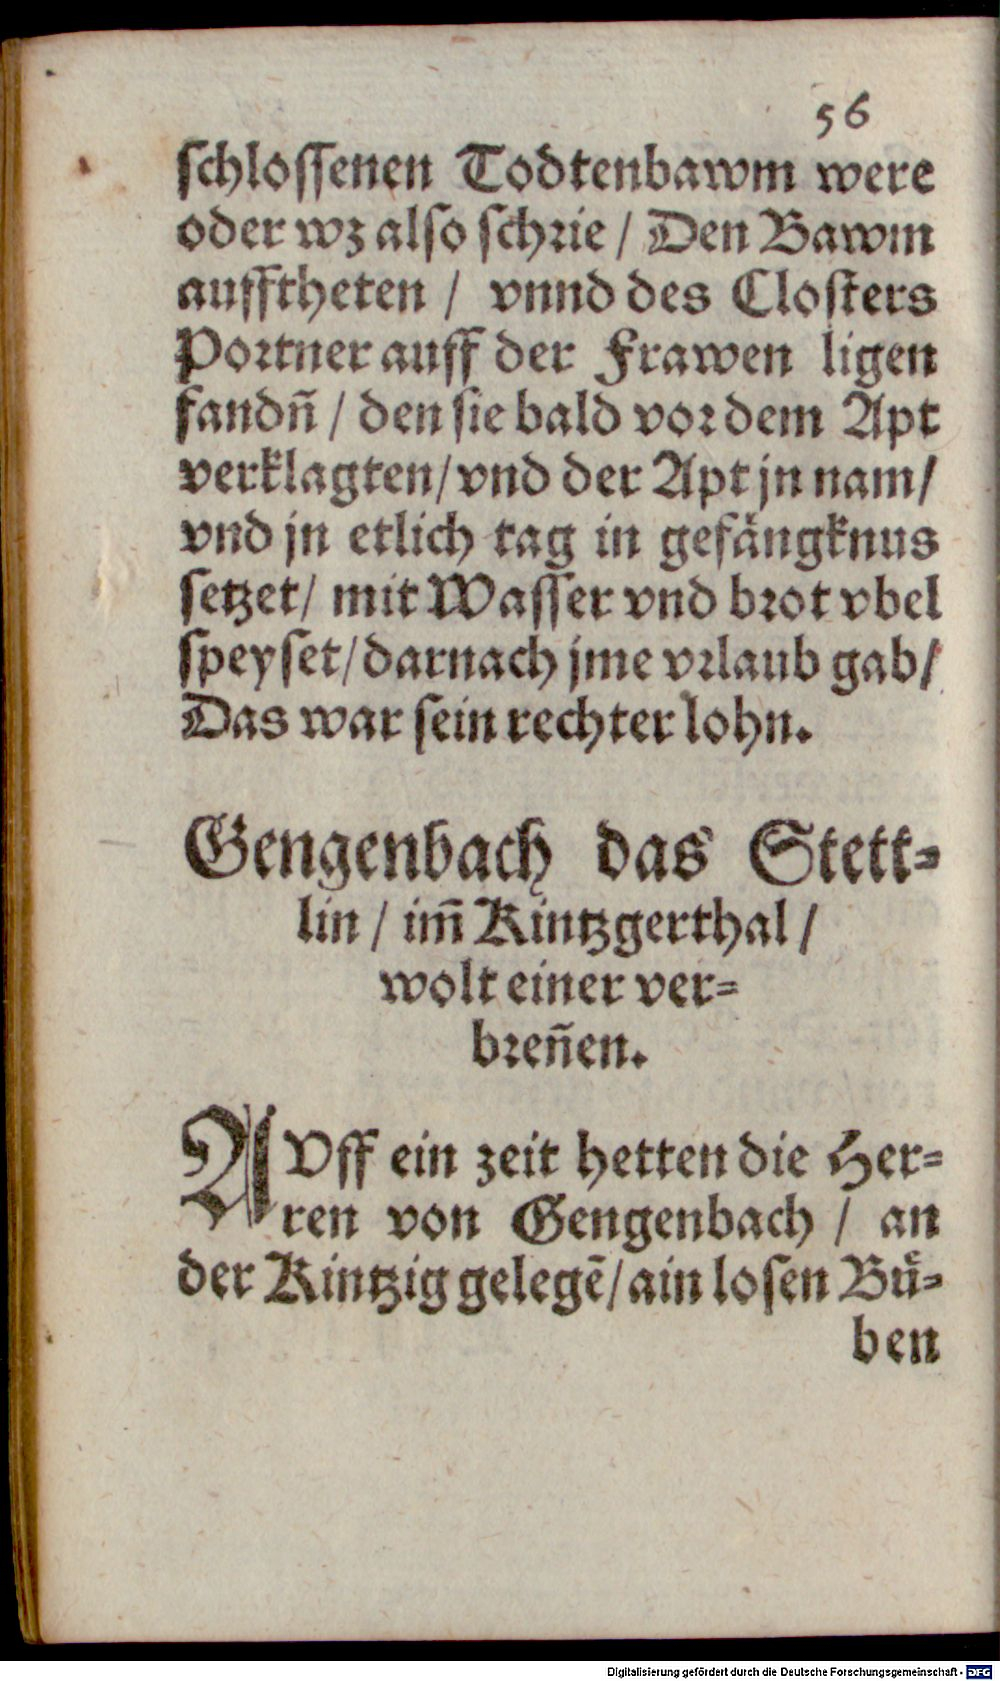 56
schlossenen Todtenbawm were
oder wz also schrie / Den Bawm
aufftheten / vnnd des Closters
Portner auff der Frawen ligen
fandn̄ / den sie bald vor dem Apt
verklagten / vnd der Apt jn nam /
vnd jn etlich tag in gefaͤngknus
setzet / mit Wasser vnd brot vbel
speyset / darnach jme vrlaub gab /
Das war sein rechter lohn.
Gengenbach das Stett-
lin / im̄ Kintzgerthal /
wolt einer ver-
bren̄en.
AVff ein zeit hetten die Her-
ren von Gengenbach / an
der Kintzig gelegē / ain losen Buͤ-
ben
Digitalisierung gefördert durch die Deutsche Forschungsgemeinschaft - DFG